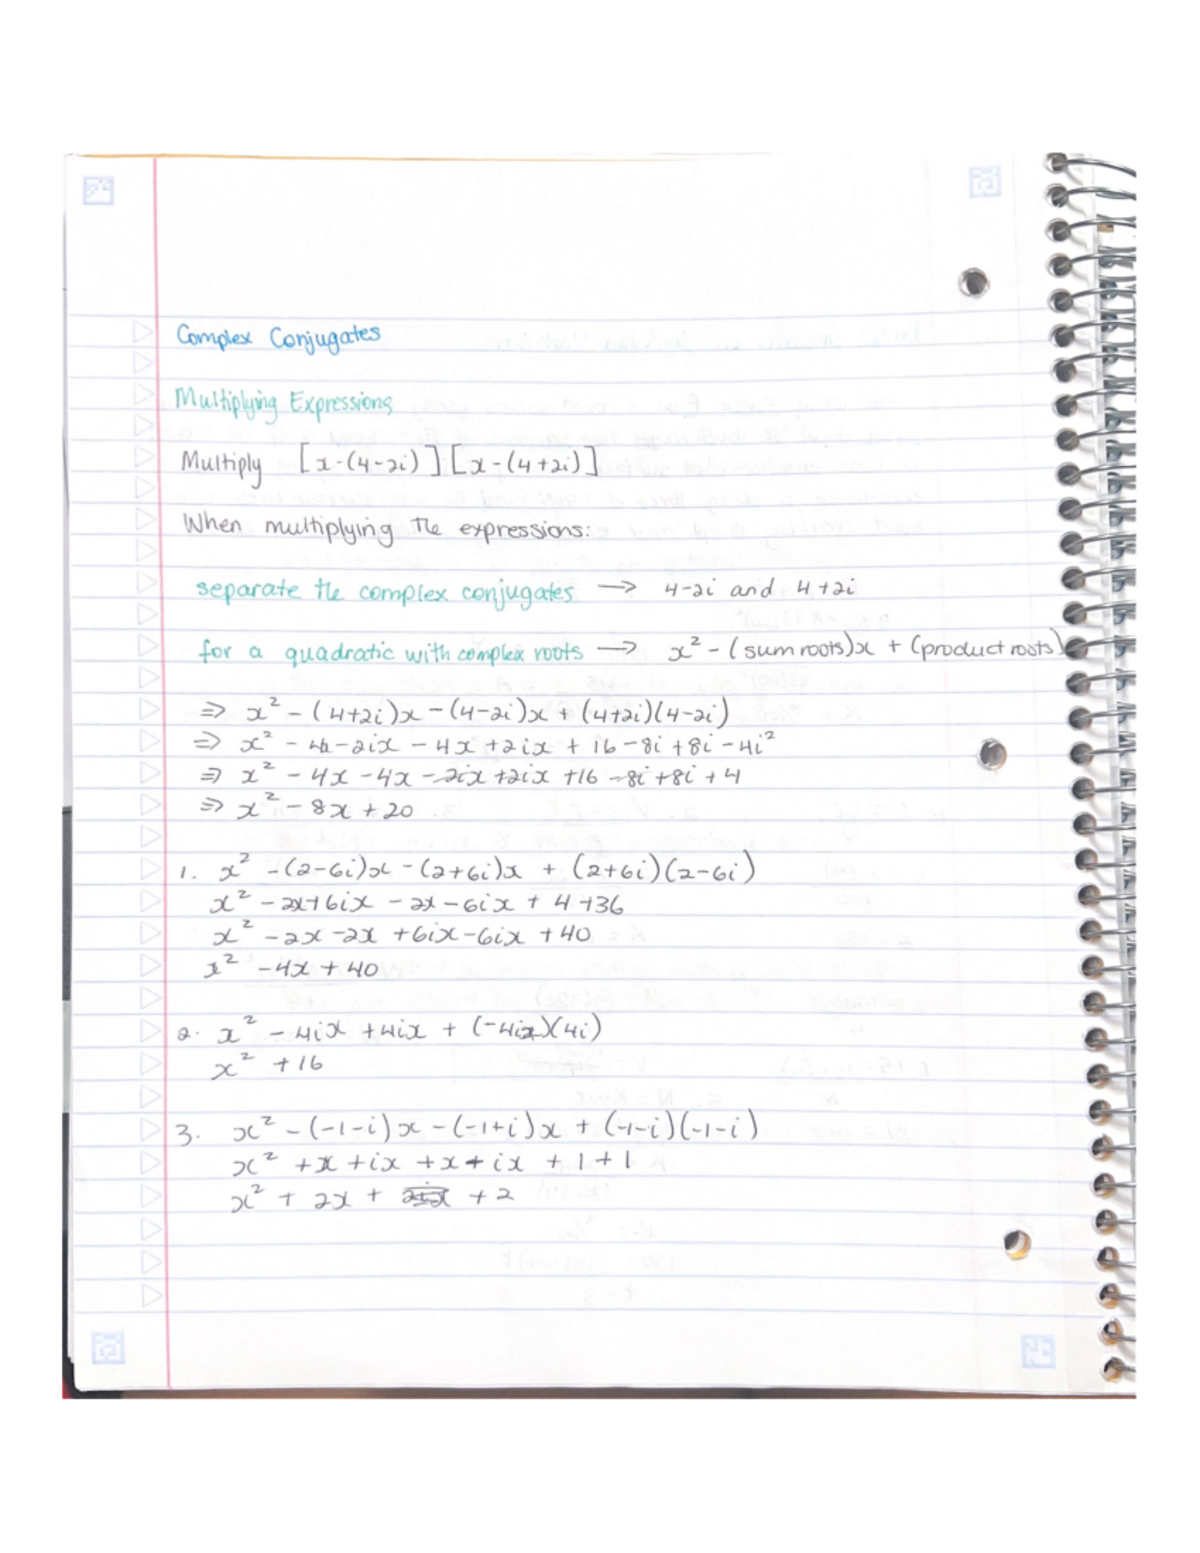 Complex Conjugates
Multiplying Expressions
Multiply [x-(4-2i)][x-(4+2i)]
When multiplying the expressions:
separate the complex conjugates → 4-2i and 4+2i
for a quadratic with complex roots → x² - (sum roots)x + (product roots)
⇒ x² - (4+2i)x - (4-2i)x + (4+2i)(4-2i)
⇒ x² - 4x - 2ix - 4x + 2ix + 16 - 8i + 8i - 4i²
⇒ x² - 4x - 4x - 2ix + 2ix + 16 - 8i + 8i + 4
⇒ x² - 8x + 20
1. x² - (2-6i)x - (2+6i)x + (2+6i)(2-6i)
x² - 2x + 6ix - 2x - 6ix + 4 + 36
x² - 2x - 2x + 6ix - 6ix + 40
x² - 4x + 40
2. x² - 4ix + 4ix + (-4i)(4i)
x² + 16
3. x² - (-1-i)x - (-1+i)x + (-1-i)(-1-i)
x² + x + ix + x + ix + 1 + 1
x² + 2x + + 2